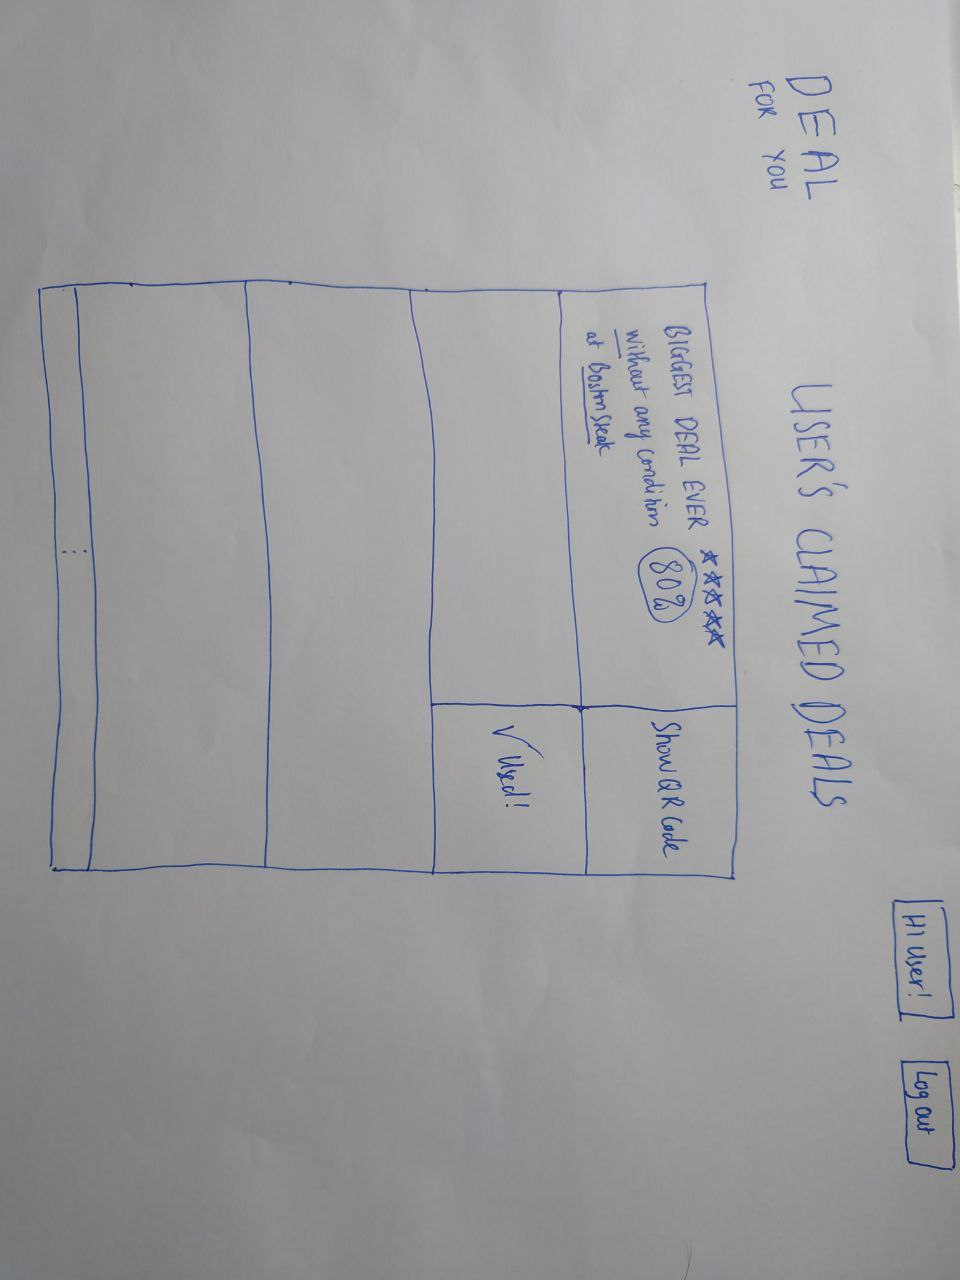 Hi User!
Log out
DEAL
FOR YOU
USER'S CLAIMED DEALS
BIGGEST DEAL EVER
without any condition
80%
at Boston Steak
Show QR Code
✓ Used!